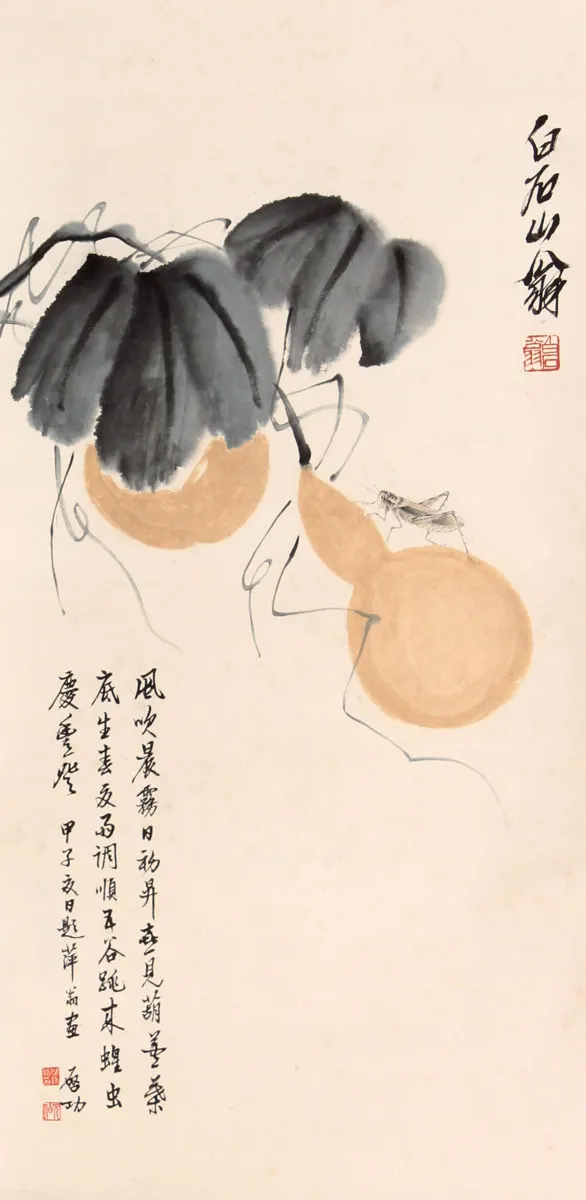 白石山翁
風吹晨霧日初昇喜見葫蘆葉
底生春夏雨調順五谷跳來蝗虫
慶豐登 甲子夏日題萍翁畫 啓功